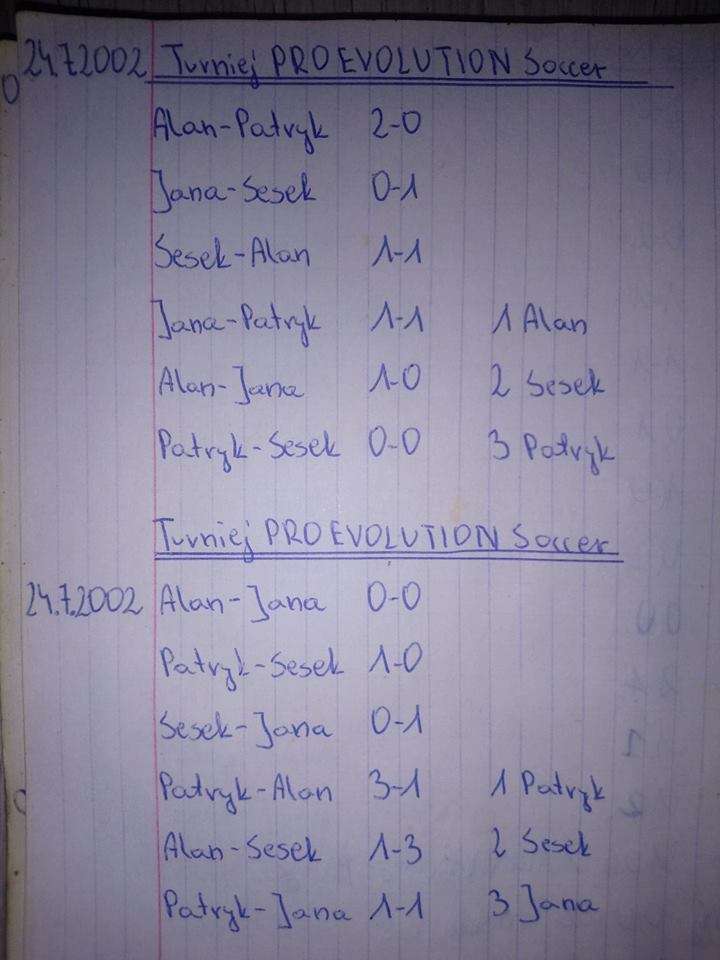 24.7.2002 Turniej PRO EVOLUTION Soccer
Alan-Patryk 2-0
Jana-Sesek 0-1
Sesek-Alan 1-1
Jana-Patryk 1-1 1 Alan
Alan-Jana 1-0 2 Sesek
Patryk-Sesek 0-0 3 Patryk
Turniej PRO EVOLUTION Soccer
24.7.2002 Alan-Jana 0-0
Patryk-Sesek 1-0
Sesek-Jana 0-1
Patryk-Alan 3-1 1 Patryk
Alan-Sesek 1-3 2 Sesek
Patryk-Jana 1-1 3 Jana